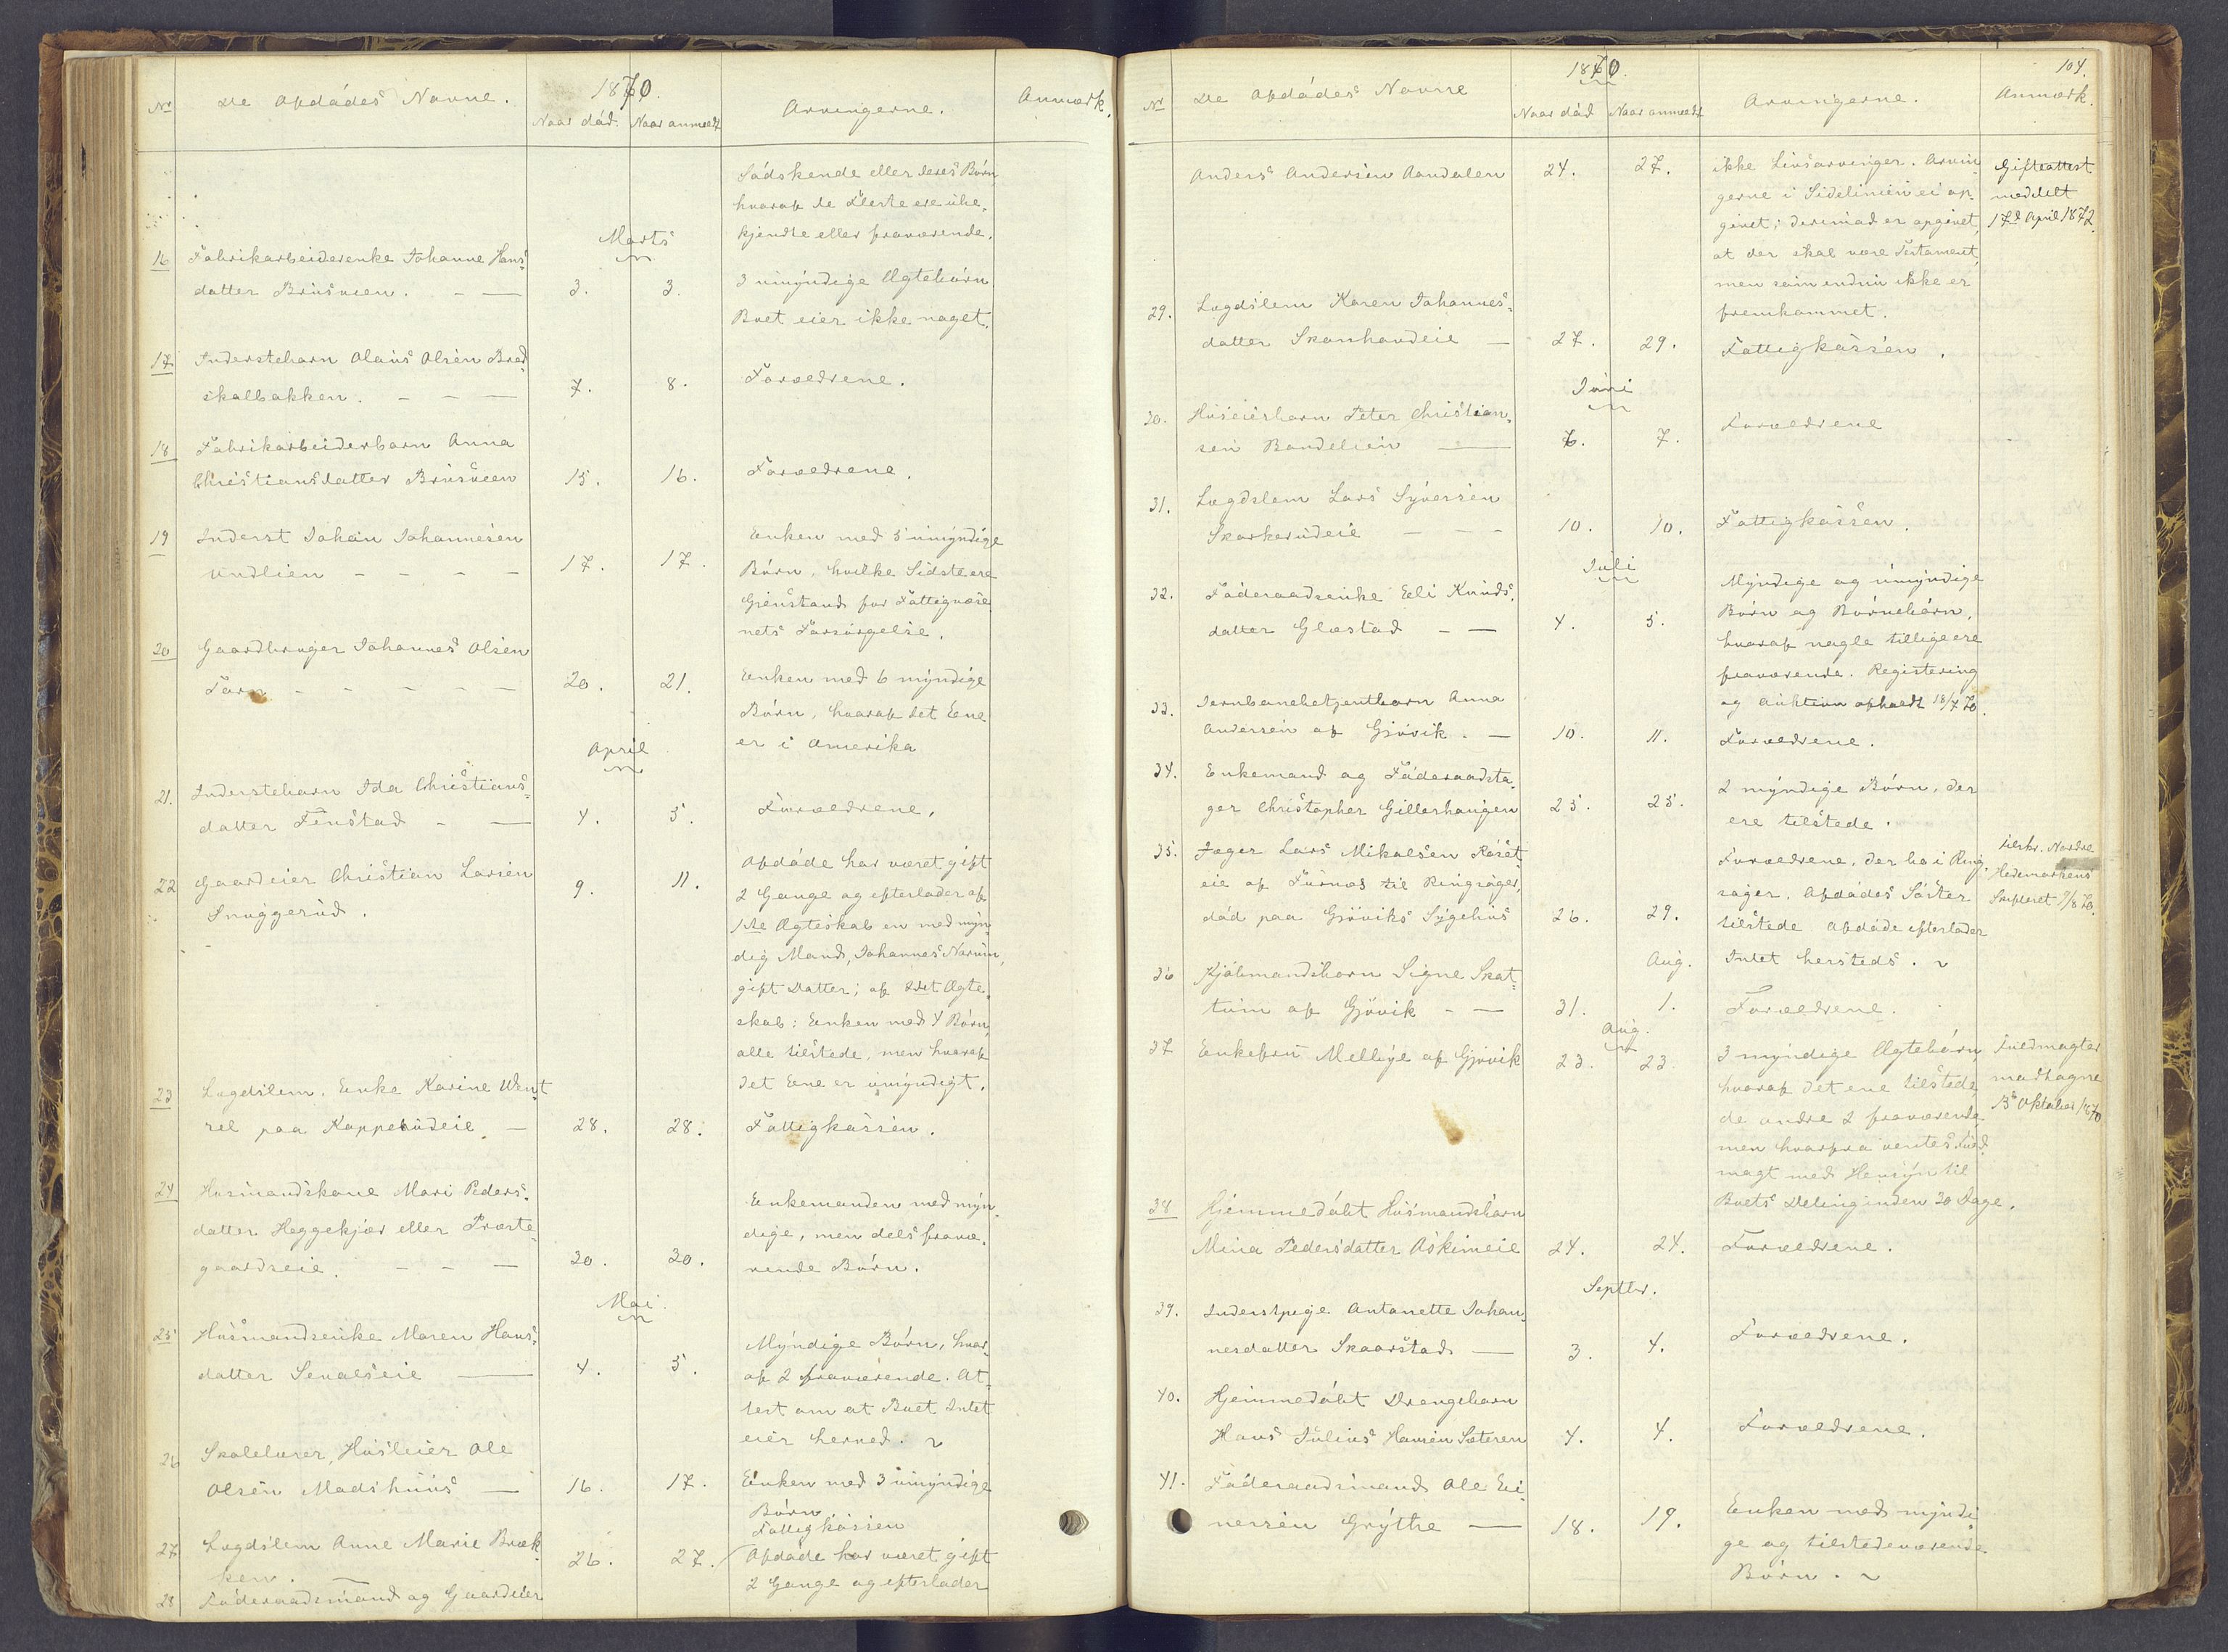 No
De Afdödes Navne.
1870.
Naar död.
Naar anmeldt
Arvingerne.
Anmærk.
Södskende eller deres Börn
hvoraf de Fleste ere ube-
kjendte eller fraværende.
Marts
16 Fabrikarbeiderenke Johanne Hans-
datter BruSveen. 3. 3. 3 umyndige Ægtebörn
Boet eier ikke noget.
17 Inderstebarn Olaus Olsen Bred-
skalbakken. 7. 8. Forældrene.
18 Fabrikarbeiderbarn Anna
Christiansdatter BruSveen 15. 16. Forældrene.
19 Inderst Johan Johannesen
Undlien 17. 17.
Enken med 5 umyndige
Börn, hvilke Sidste ere
Gjenstand for Fattigvæse-
nets Forsörgelse.
20 Gaardbruger Johannes Olsen
20. 21. Enken med 6 myndige
Börn, hvoraf det Eene
er i Amerika
April
21. Inderstebarn Ida Christians-
datter Finstad 4. 5. Forældrene.
22 Gaardeier Christian Larsen
Snuggerud. 9. 11.
Afdöde har været gift
2 Gange og efterlader af
1ste Ægteskab en med myn-
dig Mand, Johannes Narum,
gift Datter; af 2det Ægte-
skab: Enken med 4 Börn,
alle tilstede, men hvoraf
det Eene er umyndigt.
23 Lægdslem. Enke Karine Went-
zel paa Kopperudeie 28. 28. Fattigkassen.
24 Husmandskone Mari Peders-
datter Heggekjær eller Præste-
gaardseie. 30. 30.
Enkemanden med myn-
dige, men dels fravæ-
rende Börn.
Mai.
25 Husmandsenke Maren Hans-
datter 4. 5.
Myndige Börn, hvor-
af 2 fraværende. At-
test om at Boet Intet
eier herved.
26 Skolelærer, Huseier Ole
Olsen Madshuus 16. 17. Enken med 3 umyndige
Börn
27 Lægdslem Anne Marie Bræk-
ken. 26. 27. Fattigkassen
28 Föderaadsmand og Gaardeier
Afdöde har været gift
2 Gange og efterlader
104.
No
De Afdödes Navne
1870.
Naar död
Naar anmeldt
Arvingerne.
Anmærk.
Anders Andersen Aandalen 24. 27.
ikke Livsarvinger. Arvin-
gerne i Sidelinien ei op-
givet; derimod er opgivet,
at der skal være Testament,
men som endnu ikke er
fremkommet.
Gifteattest
meddelt
17d April 1872.
29. Lægdslem Karen Johannes-
datter Skonhovdeie 27. 29. Fattigkassen.
Juni
30. Huseierbarn Peter Christian-
sen Bondelien 6. 7. Forældrene
31. Lægdslem Lars Syversen
Skarkerudeie 10. 10. Fattigkassen.
Juli
32. Föderaadsenke Eli Knuds-
datter Glæstad 4. 5.
Myndige og umyndige
Börn og Börnebörn,
hvoraf nogle tillige ere
fraværende. Registering
og Auktion afholdt 18/7 70.
33. Jernbanebetjentbarn Anna
Andersen af Gjövik. 10. 11. Forældrene.
34. Enkemand og Föderaadsta-
ger Christopher Gillerhaugen 25. 25.
2 myndige Börn, der
ere tilstede.
35. Jæger Lars Mikalsen Röset-
eie af Furnæs til Ringsager,
död paa Gjöviks Sygehus 26. 29.
Forældrene, der bo i Ring-
sager. Afdödes Söster
tilstede. Afdöde efterlader
Intet hersteds.
tilskr. Nordre
Hedemarkens
Skifteret 9/8 70.
Aug.
36 Kjöbmandsbarn Signe Skat-
tum af Gjövik 31. 1. Forældrene.
Aug.
37 Enkefru Mellbye af Gjövik 23. 23.
3 myndige Ægtebörn
hvoraf det ene tilstede,
de andre 2 fraværende,
men hvorfra ventes Fuld-
magt med Hensyn til
Boets Deling inden 30 Dage.
Fuldmagter
modtagne
3d Oktober 1870
38 Hjemmedöbt Husmandsbarn
Mina Pedersdatter Askimeie 24. 24. Forældrene.
Septbr.
39. Inderstpige Antonette Johan-
nesdatter Skaarstad 3. 4. Forældrene.
40. Hjemmedöbt Drengebarn
Hans Julius Hansen Sæteren 4. 4. Forældrene.
41. Föderaadsmand Ole Ei-
nersen Grythe 18. 19.
Enken med myndi-
ge og tilstedeværende
Börn.